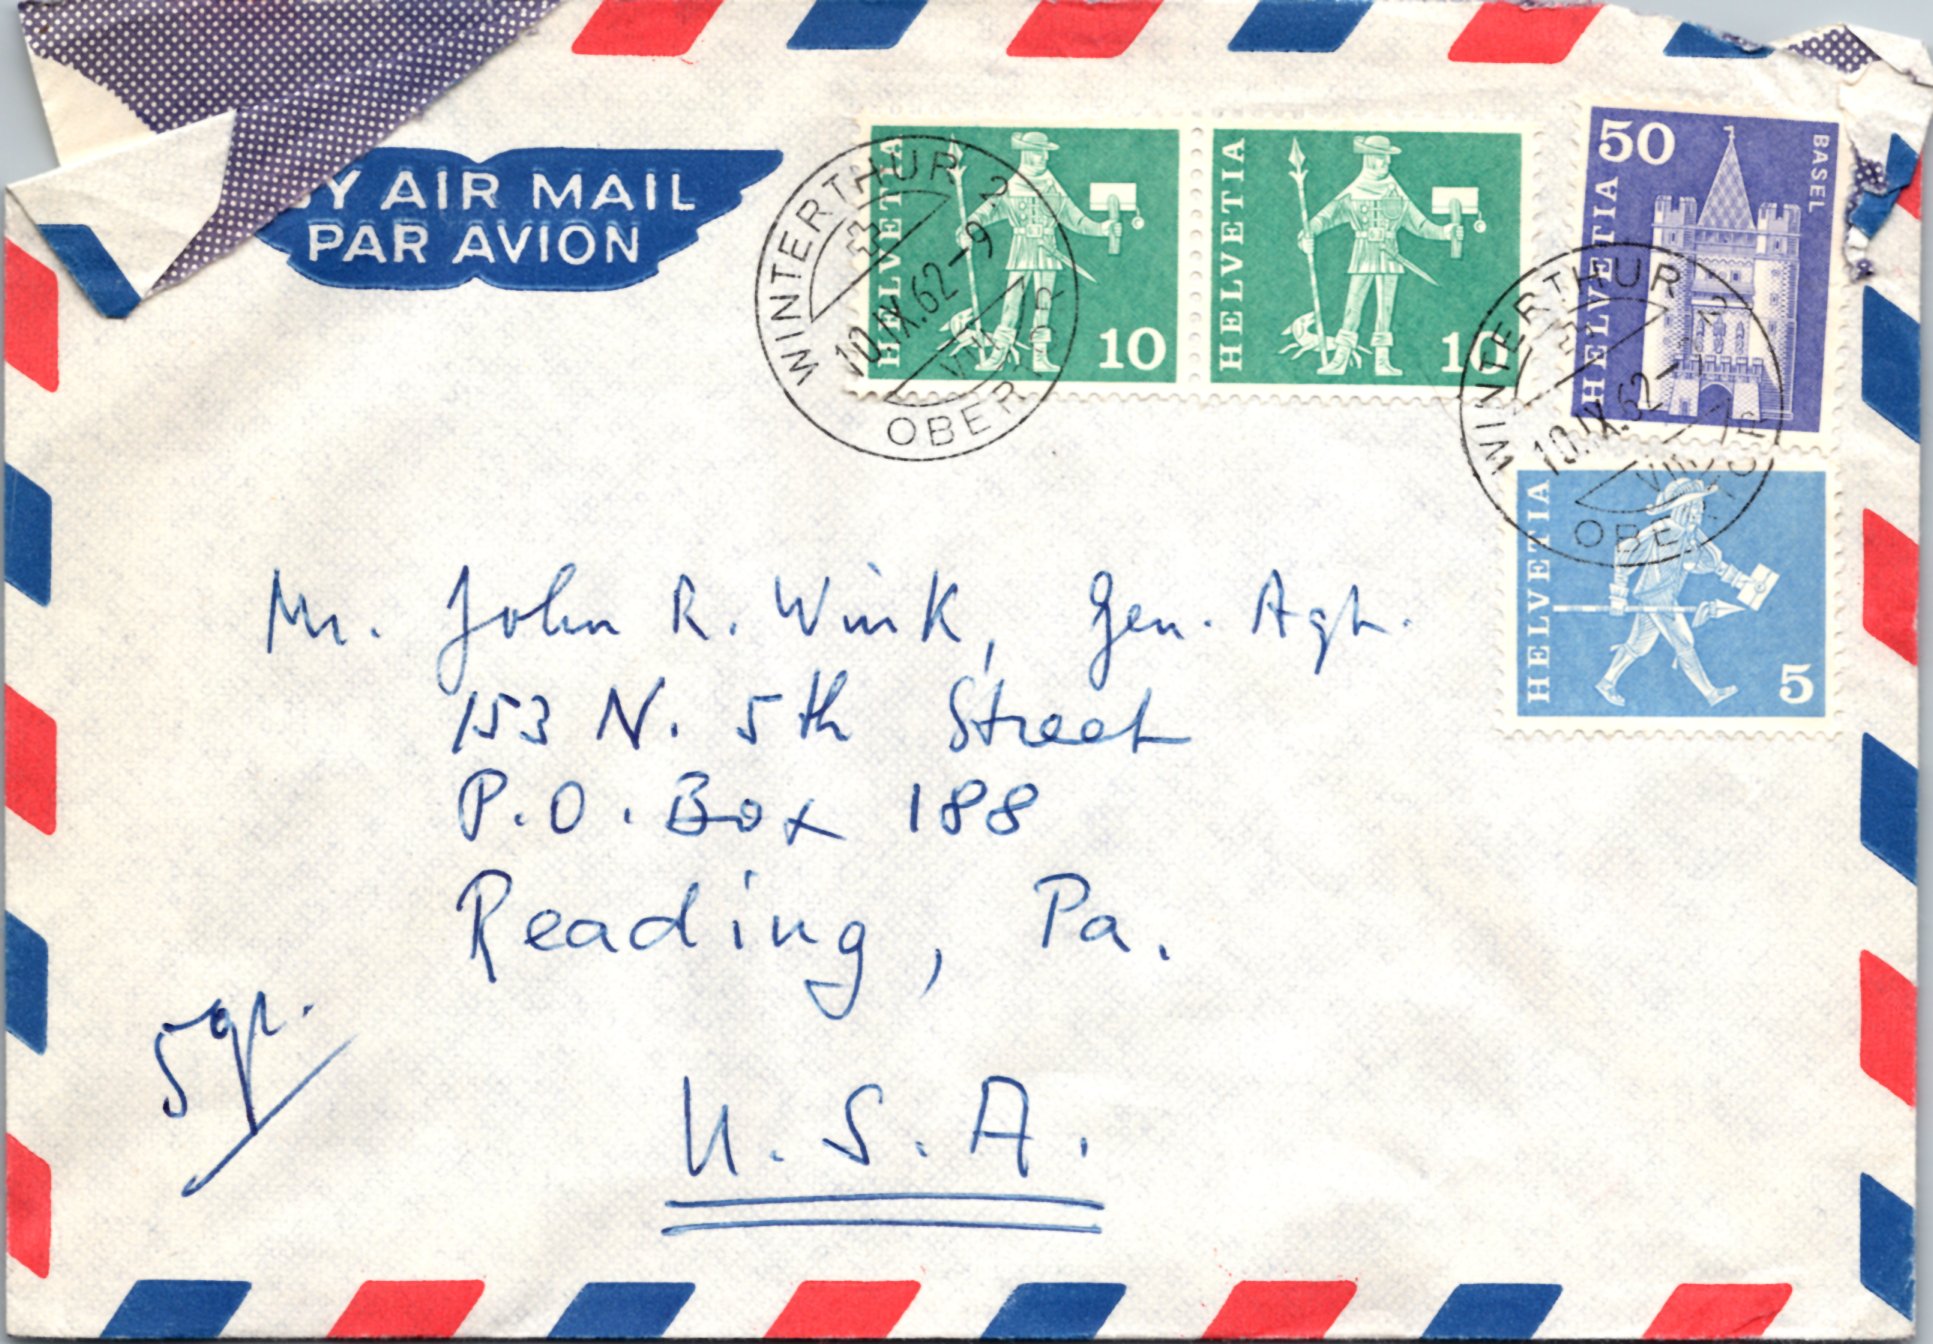 Y AIR MAIL
PAR AVION
HELVETIA
10
HELVETIA
10
50
BASEL
HELVETIA
HELVETIA
5
WINTERTHUR 2
10.IX.62-9
VIII
OBERTOR
WINTERTHUR 2
10.IX.62-
VIII
OBERTOR
Mr. John R. Wink, Gen. Agt.
153 N. 5th Street
P.O. Box 188
Reading, Pa.
5gr.
U.S.A.